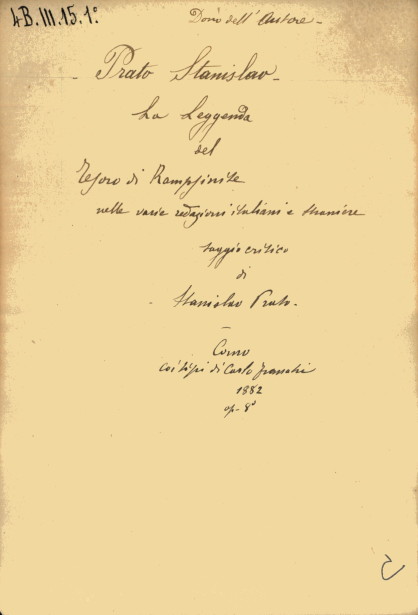 4B.III.15.1°
Dono dell'Autore -
- Prato Stanislao -
La Leggenda
del
Tesoro di Rampsinite
nelle varie redazioni italiane e straniere
saggio critico
di
- Stanislao Prato -
Como
coi tipi di Carlo Franchi
1882
op. 8°